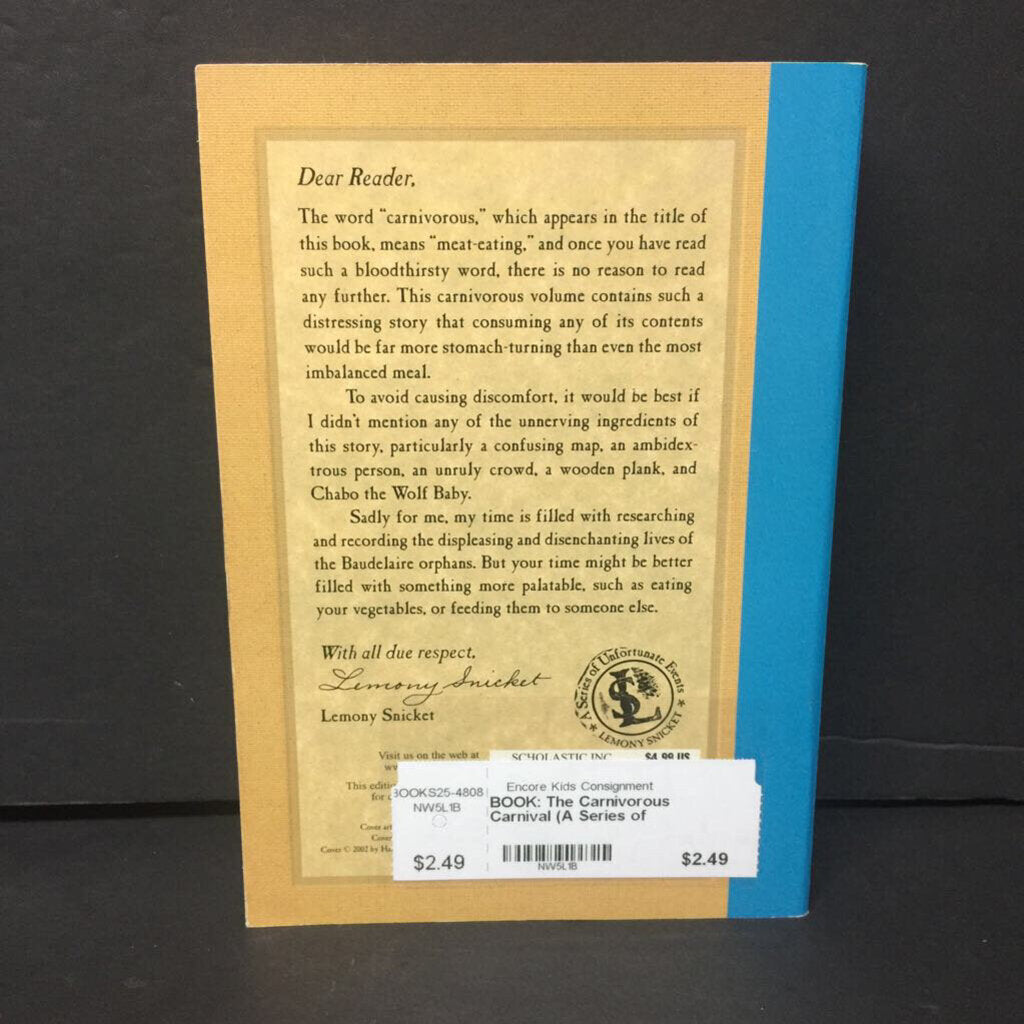 Dear Reader,
The word “carnivorous,” which appears in the title of
this book, means “meat-eating,” and once you have read
such a bloodthirsty word, there is no reason to read
any further. This carnivorous volume contains such a
distressing story that consuming any of its contents
would be far more stomach-turning than even the most
imbalanced meal.
To avoid causing discomfort, it would be best if
I didn't mention any of the unnerving ingredients of
this story, particularly a confusing map, an ambidex-
trous person, an unruly crowd, a wooden plank, and
Chabo the Wolf Baby.
Sadly for me, my time is filled with researching
and recording the displeasing and disenchanting lives of
the Baudelaire orphans. But your time might be better
filled with something more palatable, such as eating
your vegetables, or feeding them to someone else.
With all due respect,
Lemony Snicket
Lemony Snicket
A Series of Unfortunate Events
LS
★ LEMONY SNICKET ★
Visit us on the web at
SCHOLASTIC INC. $4.99 US
This
for
Cover
Cover © 2002 by
BOOKS25-4808
NW5L1B
$2.49
Encore Kids Consignment
BOOK: The Carnivorous
Carnival (A Series of
NW5L1B
$2.49